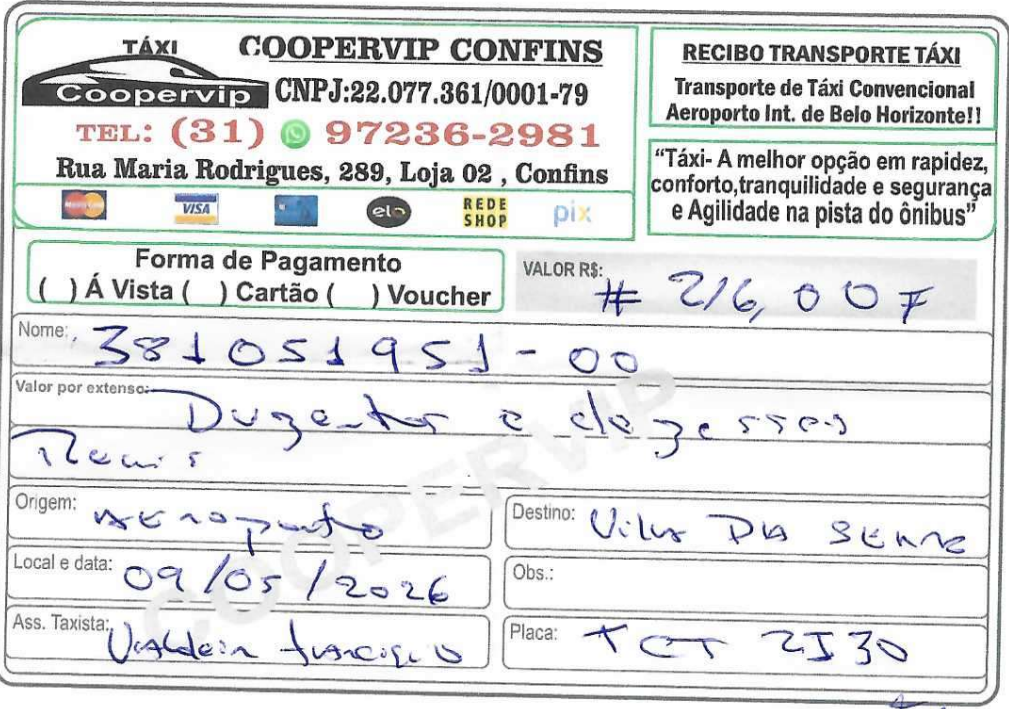 TÁXI
Coopervip
COOPERVIP CONFINS
CNPJ:22.077.361/0001-79
TEL: (31) 97236-2981
Rua Maria Rodrigues, 289, Loja 02 , Confins
MasterCard VISA elo REDE SHOP pix
RECIBO TRANSPORTE TÁXI
Transporte de Táxi Convencional
Aeroporto Int. de Belo Horizonte!!
“Táxi- A melhor opção em rapidez,
conforto,tranquilidade e segurança
e Agilidade na pista do ônibus”
Forma de Pagamento
( ) Á Vista ( ) Cartão ( ) Voucher
VALOR R$: # 216,00
Nome: 381051951-00
Valor por extenso: Duzentos e dezesseis
Reais
Origem: Aeroporto
Destino: Vila DA SERRA
Local e data: 09/05/2026
Obs.:
Ass. Taxista: Francisco
Placa: TCT 2J30
COOPERVIP